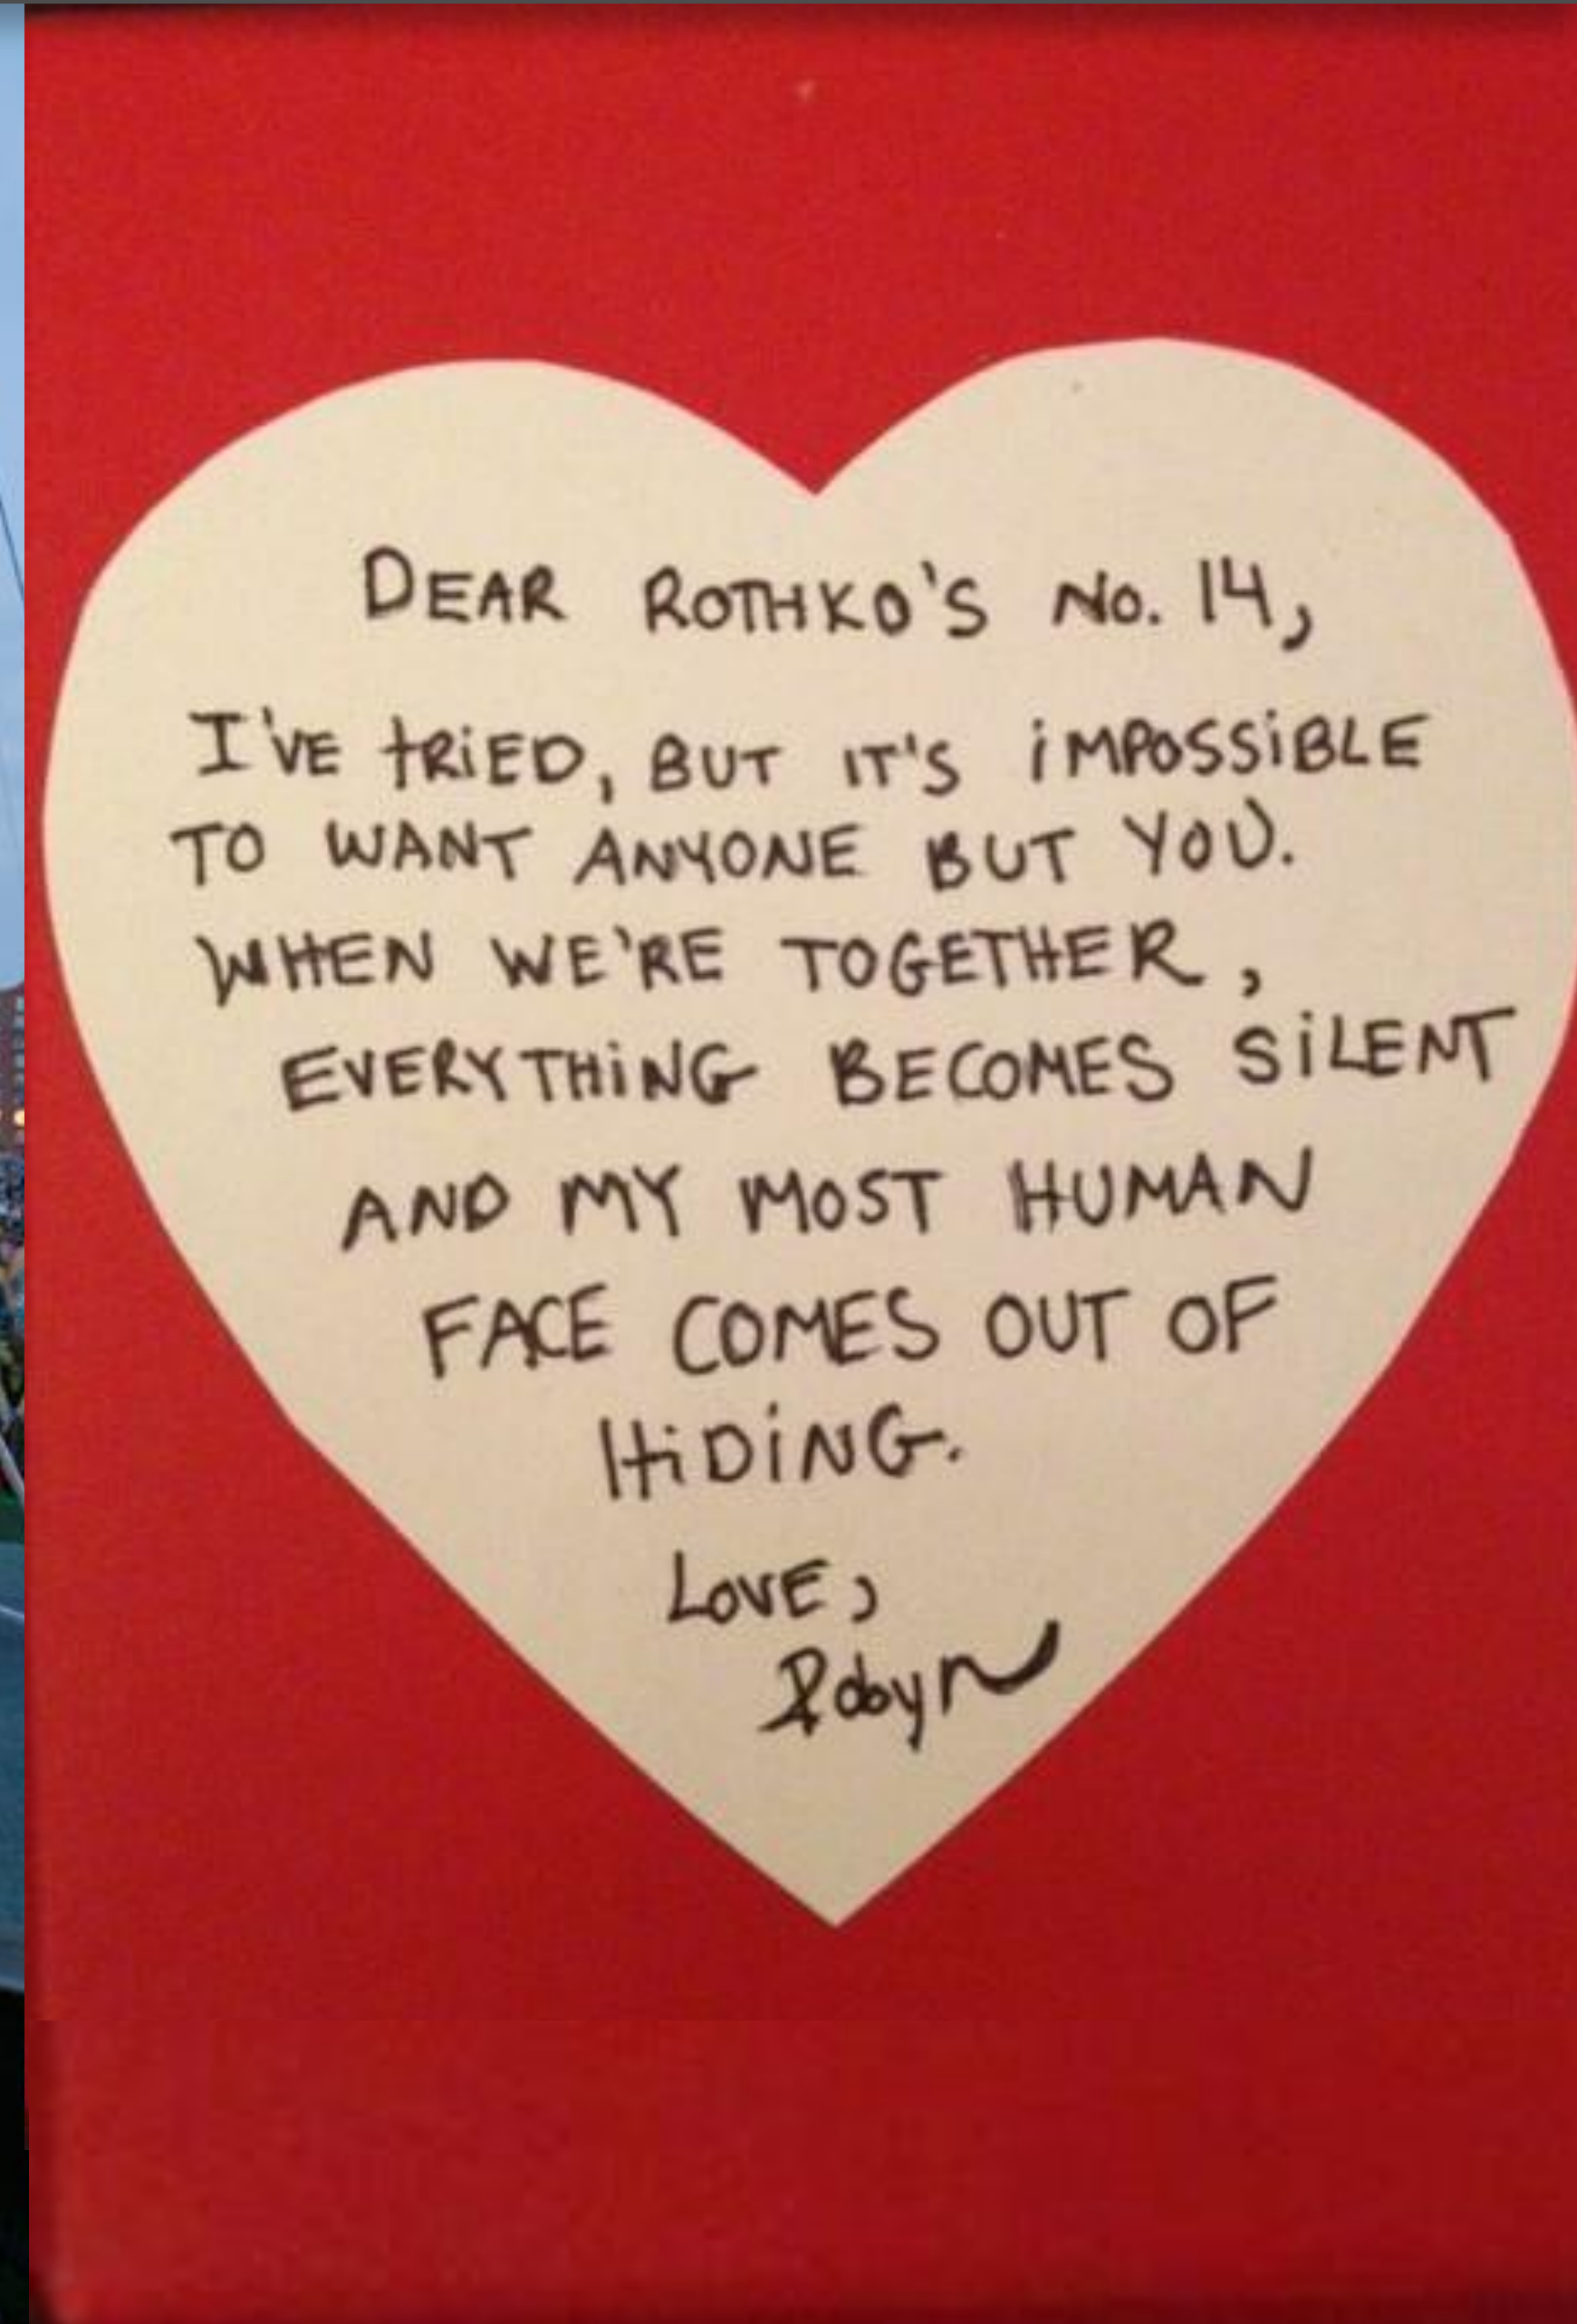 DEAR ROTHKO'S No. 14,
I'VE tRiED, BUT IT'S iMPOSSiBLE
TO WANT ANYONE BUT YOU.
WHEN WE'RE TOGETHER,
EVERYTHiNG BECOMES SiLENT
AND MY MOST HUMAN
FACE COMES OUT OF
HiDiNG.
LOVE,
Robyn